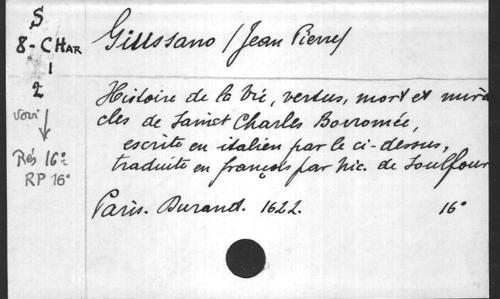 S
8 - CHAR
1
2
voir
Rés 16º
RP 16º
Giussano / Jean Pierre /
Histoire de la Vie, vertus, mort et mira
cles de Sainct Charles Borromée,
escrite en italien par le ci-dessus,
traduite en françois par Nic. de Soulfour
Paris. Durand. 1622. 16º